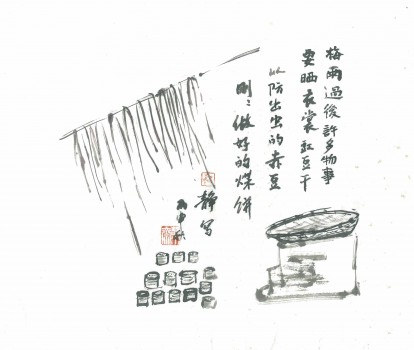 梅雨過後許多物事
要晒衣裳豇豆干
以防出虫的赤豆
剛剛做好的煤餅
靜写